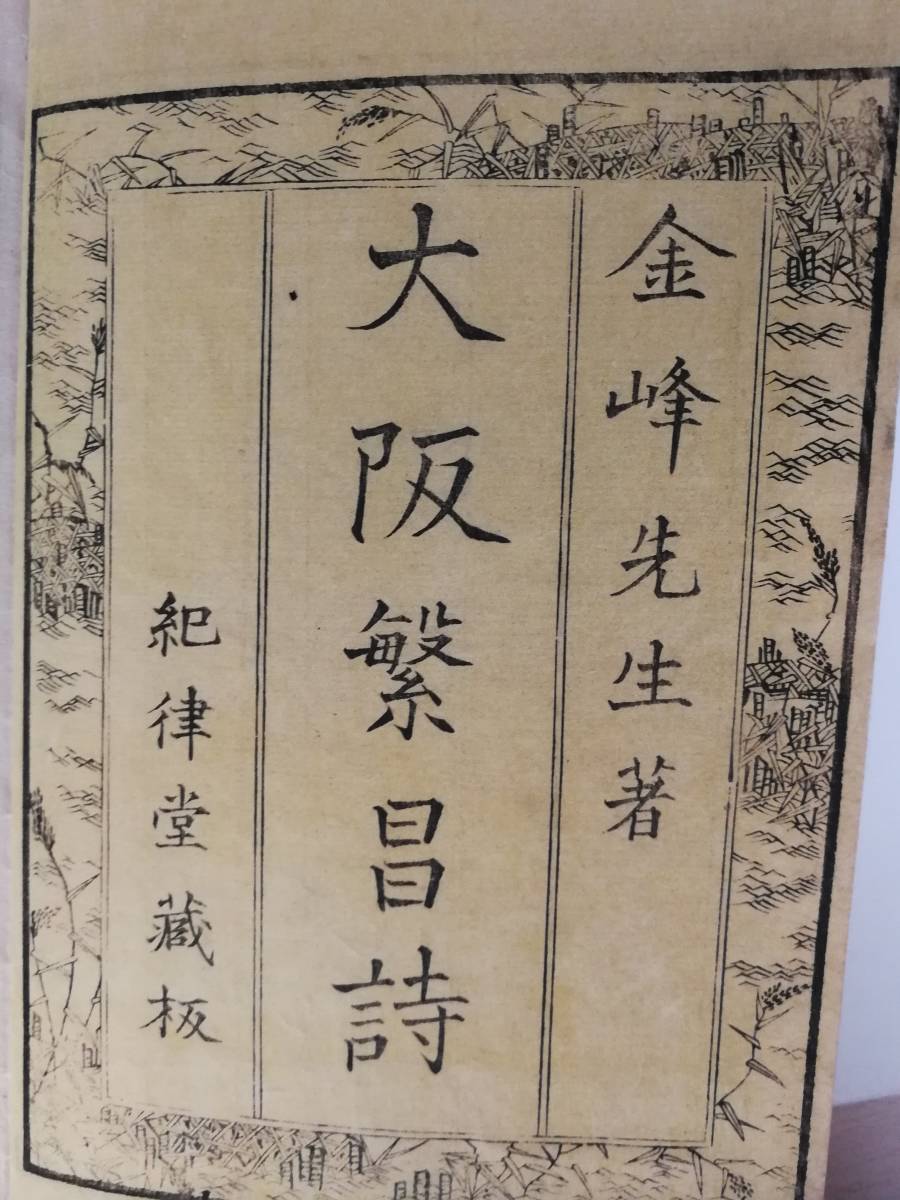 金峰先生著
大阪繁昌詩
紀律堂藏板